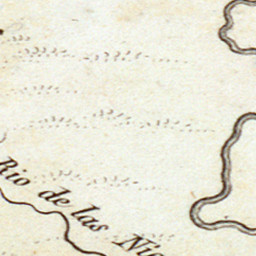 Rio de las Nie